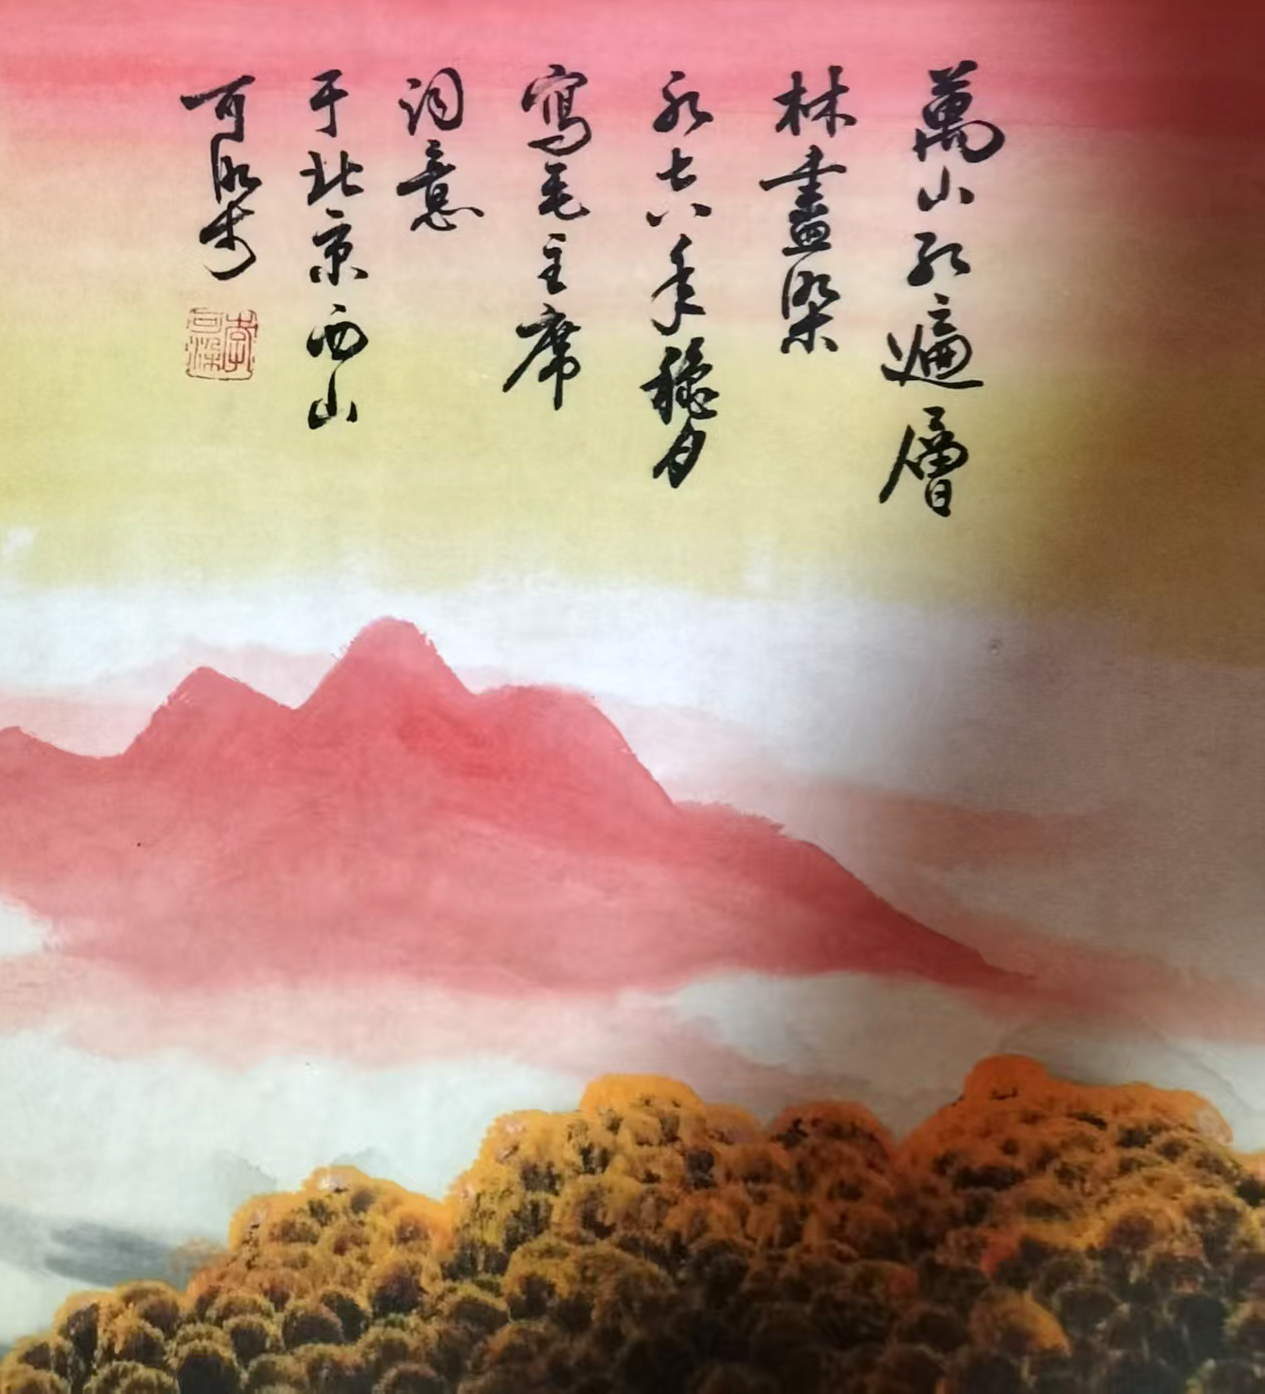 萬山紅遍層
林盡染
七六年穐月
寫毛主席
詞意
于北京西山
可染
李可染